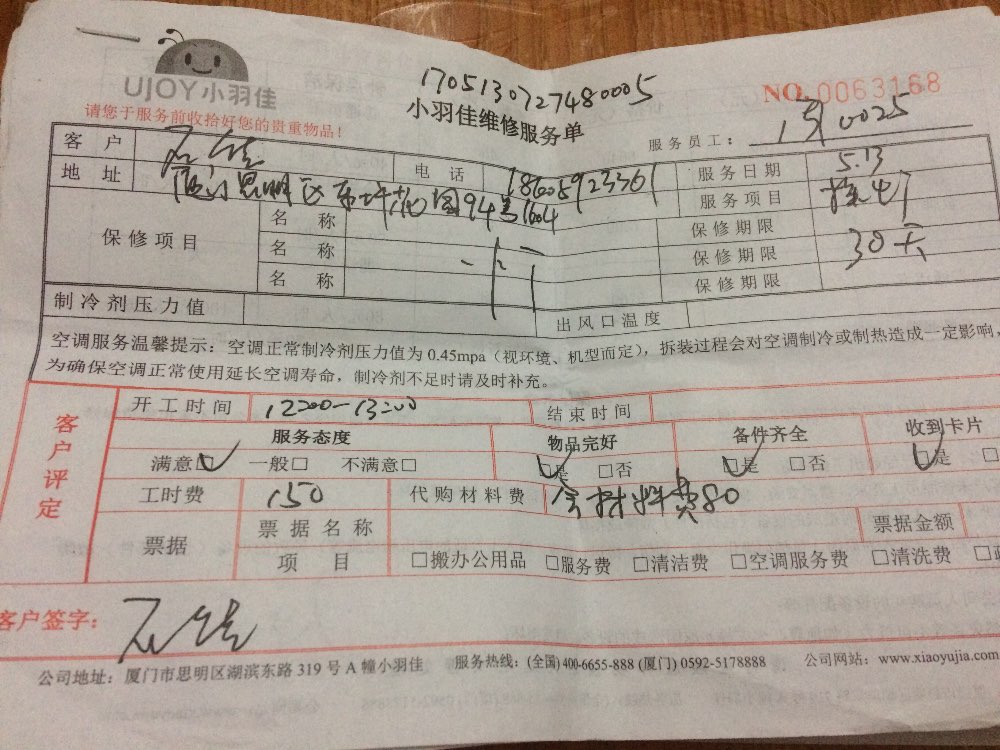 UJOY小羽佳
请您于服务前收拾好您的贵重物品！
1705130727480005
小羽佳维修服务单
NO.0063168
服务员工： 0025
客 户 电 话 18605923361 服务日期 5.13
地 址 厦门思明区东坪花园94号1604 服务项目
保修项目 名 称 保修期限
名 称 保修期限 30天
名 称 保修期限
制冷剂压力值 出风口温度
空调服务温馨提示：空调正常制冷剂压力值为 0.45mpa（视环境、机型而定），拆装过程会对空调制冷或制热造成一定影响，
为确保空调正常使用延长空调寿命，制冷剂不足时请及时补充。
客户评定
开工时间 12:00-13:00 结束时间
服务态度 物品完好 备件齐全 收到卡片
满意□ 一般□ 不满意□ □是 □否 □是 □否 □是 □
工时费 150 代购材料费 含材料费80
票据 票 据 名 称 票据金额
项 目 □搬办公用品 □服务费 □清洁费 □空调服务费 □清洗费 □
客户签字：
公司地址：厦门市思明区湖滨东路 319 号 A 幢小羽佳 服务热线：(全国) 400-6655-888 (厦门) 0592-5178888 公司网站：www.xiaoyujia.com